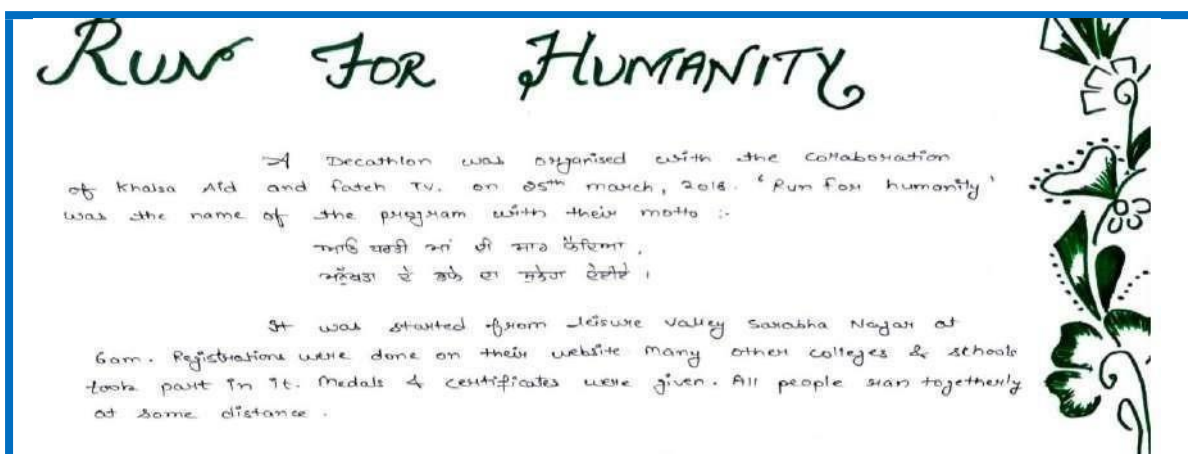 RUN FOR HUMANITY
A Decathlon was organised with the Collaboration
of Khalsa Aid and fateh TV. on 25th march, 2018. 'Run For humanity'
was the name of the program with their motto :-
ਆਓ ਧਰਤੀ ਮਾਂ ਦੀ ਸਾਰ
ਦੇ ਭਲੇ ਦਾ ਸੁਨੇਹਾ ਦੇਈਏ ।
It was started from Leisure Valley Sarabha Nagar at
6am. Registrations were done on their website Many other colleges & schools
took part in it. Medals & certificates were given. All people ran togetherly
at some distance.